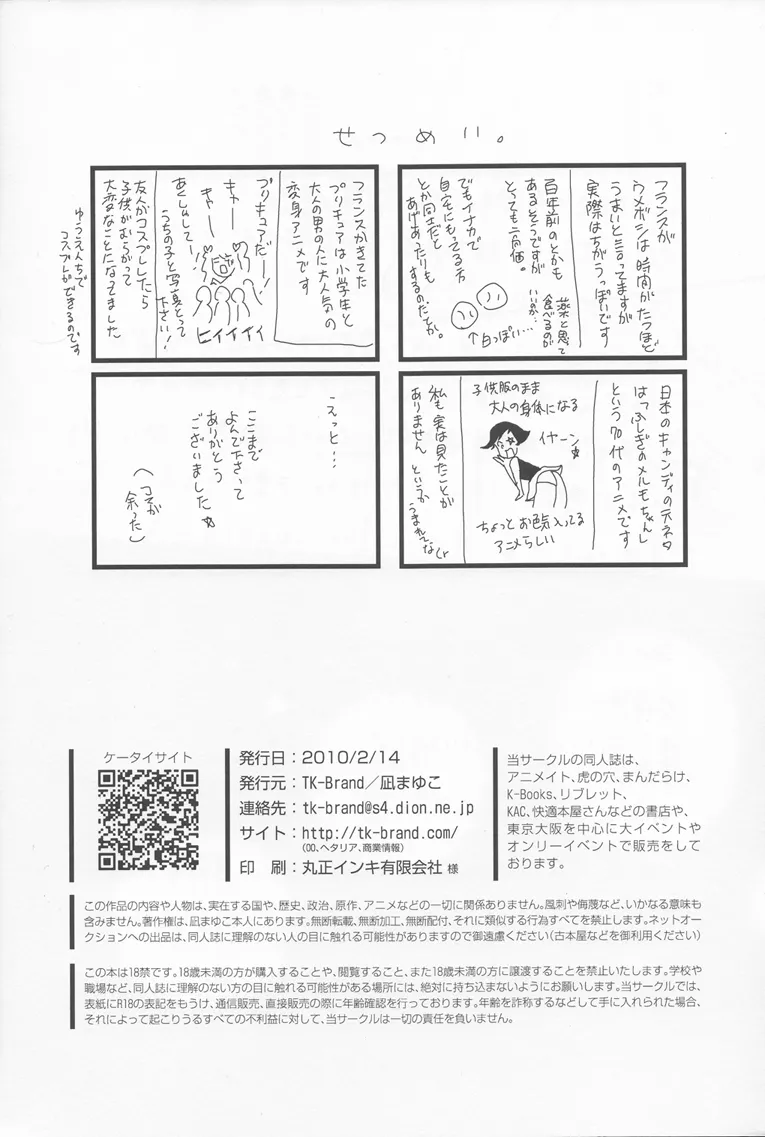 せつめい。
フランスが
ウメボシは時間がたつほど
うまいと言ってますが
実際はちがうっぽいです
百年前のとかも
あるそうですが
とっても高価。
薬と思て
食べるのが
いいのか…
でもイナカで
自宅にもってる方
とか同士だと
あげあったりも
するのだとか。
↑白っぽい…
フランスかきてた
プリキュアは小学生と
大人の男の人に大人気の
変身アニメです
プリキュアだー!
キャー
キャー
あくしゅしてー!
うちの子と写真とって
下さい!
ヒィィィィ
友人がコスプレしたら
子供がむらがって
大変なことになってました
ゆうえんちで
コスプレができるのです
日本のキャンディの元ネタ
はっふしぎのメルモちゃん」
という70代のアニメです
子供服のまま
大人の身体になる
イヤーン☆
ちょっとお色気入ってる
アニメらしい
私も実は見たことが
ありません というか
うまれてない
えっと…
ここまで
よんで下さって
ありがとう
ございました☆
(コマが
余った)
ケータイサイト
発行日:2010/2/14
発行元:TK-Brand/凪まゆこ
連絡先:tk-brand@s4.dion.ne.jp
サイト:http://tk-brand.com/
(OO、ヘタリア、商業情報)
印 刷:丸正インキ有限会社 様
当サークルの同人誌は、
アニメイト、虎の穴、まんだらけ、
K-Books、リブレット、
KAC、快適本屋さんなどの書店や、
東京大阪を中心に大イベントや
オンリーイベントで販売をして
おります。
この作品の内容や人物は、実在する国や、歴史、政治、原作、アニメなどの一切に関係ありません。風刺や侮蔑など、いかなる意味も
含みません。著作権は、凪まゆこ本人にあります。無断転載、無断加工、無断配付、それに類似する行為すべてを禁止します。ネットオー
クションへの出品は、同人誌に理解のない人の目に触れる可能性がありますので御遠慮ください(古本屋などを御利用ください)
この本は18禁です。18歳未満の方が購入することや、閲覧すること、また18歳未満の方に譲渡することを禁止いたします。学校や
職場など、同人誌に理解のない方の目に触れる可能性がある場所には、絶対に持ち込まないようにお願いします。当サークルでは、
表紙にR18の表記をもうけ、通信販売、直接販売の際に年齢確認を行っております。年齢を詐称するなどして手に入れられた場合、
それによって起こりうるすべての不利益に対して、当サークルは一切の責任を負いません。